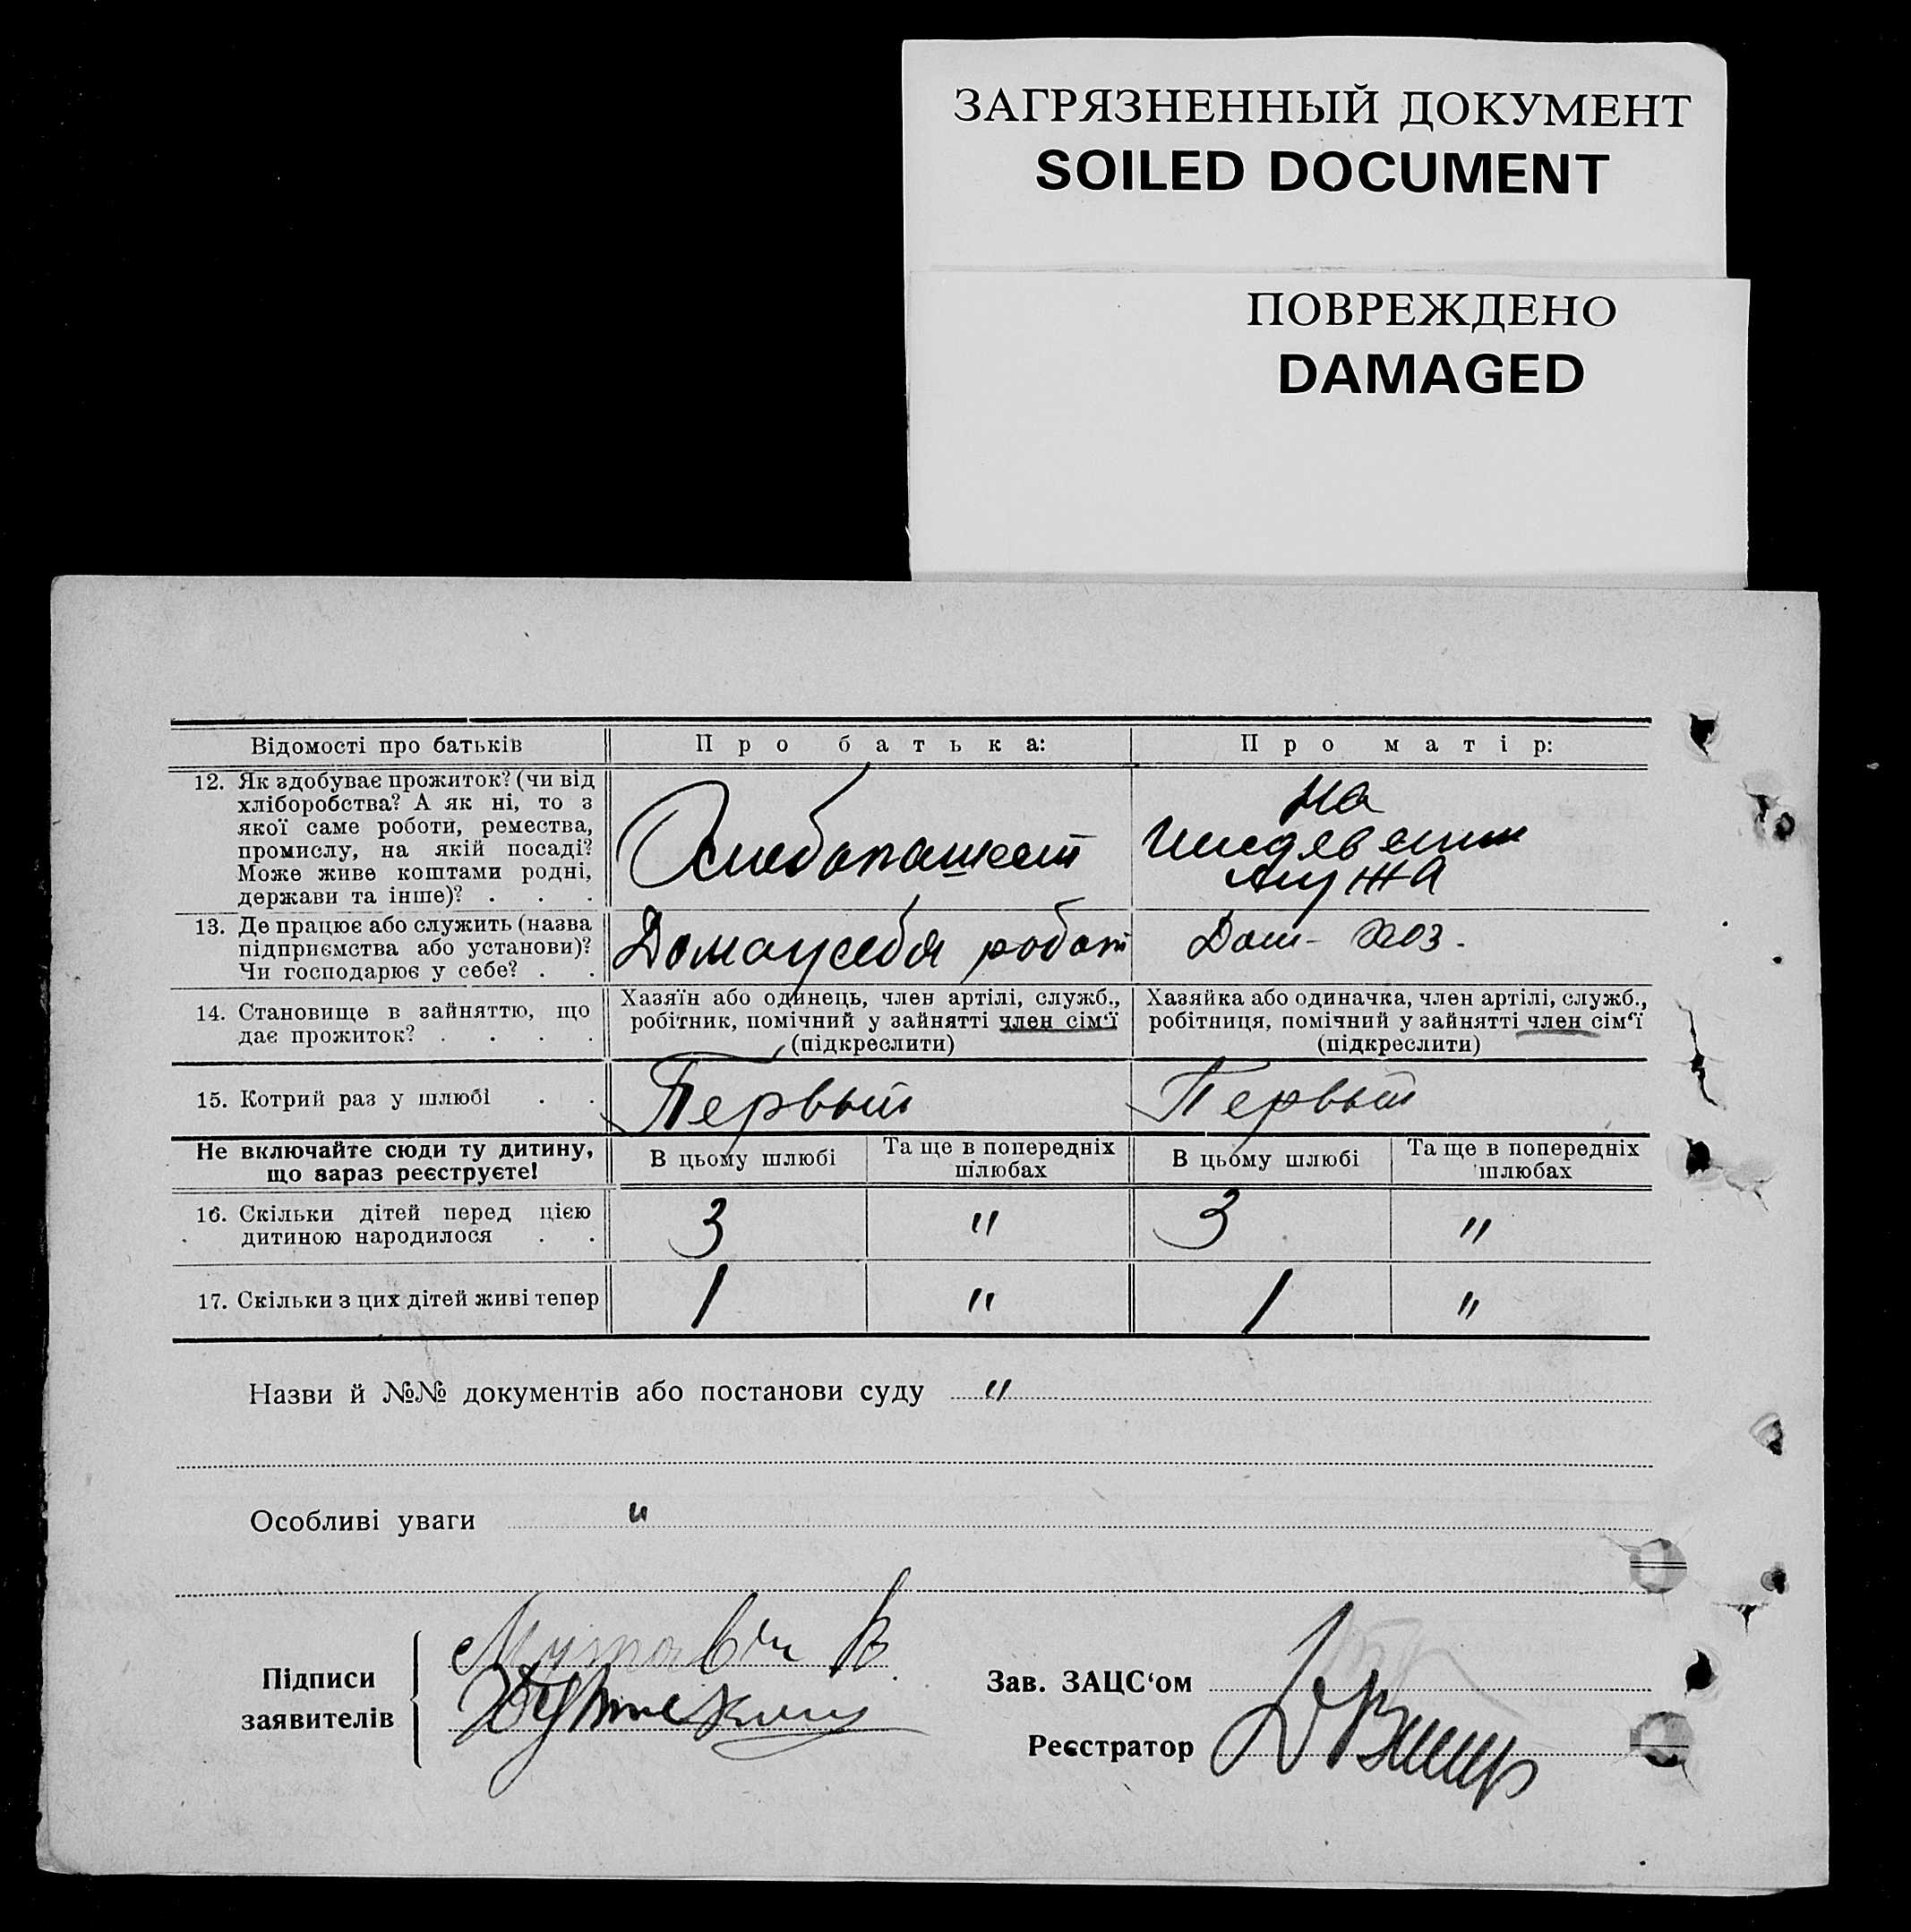 ЗАГРЯЗНЕННЫЙ ДОКУМЕНТ
SOILED DOCUMENT
ПОВРЕЖДЕНО
DAMAGED
Відомості про батьків
Про батька:
Про матір:
12. Як здобуває прожиток? (чи від
хліборобства? А як ні, то з
якої саме роботи, ремества,
промислу, на якій посаді?
Може живе коштами родні,
держави та інше)? . . .
Хлебопашест
на
иждевении
мужа
13. Де працює або служить (назва
підприємства або установи)?
Чи господарює у себе? . .
Дома у себя работ
Дом- хоз.
14. Становище в зайняттю, що
дає прожиток? . . . .
Хазяїн або одинець, член артілі, служб.,
робітник, помічний у зайнятті член сім‘ї
(підкреслити)
Хазяйка або одиначка, член артілі, служб.,
робітниця, помічний у зайнятті член сім‘ї
(підкреслити)
15. Котрий раз у шлюбі . .
Первый
Первый
Не включайте сюди ту дитину,
що зараз реєструєте!
В цьому шлюбі
Та ще в попередніх
шлюбах
В цьому шлюбі
Та ще в попередніх
шлюбах
16. Скільки дітей перед цією
дитиною народилося . .
3
"
3
"
17. Скільки з цих дітей живі тепер
1
"
1
"
Назви й №№ документів або постанови суду "
Особливі уваги "
Підписи
заявителів
Зав. ЗАЦС‘ом
Реєстратор